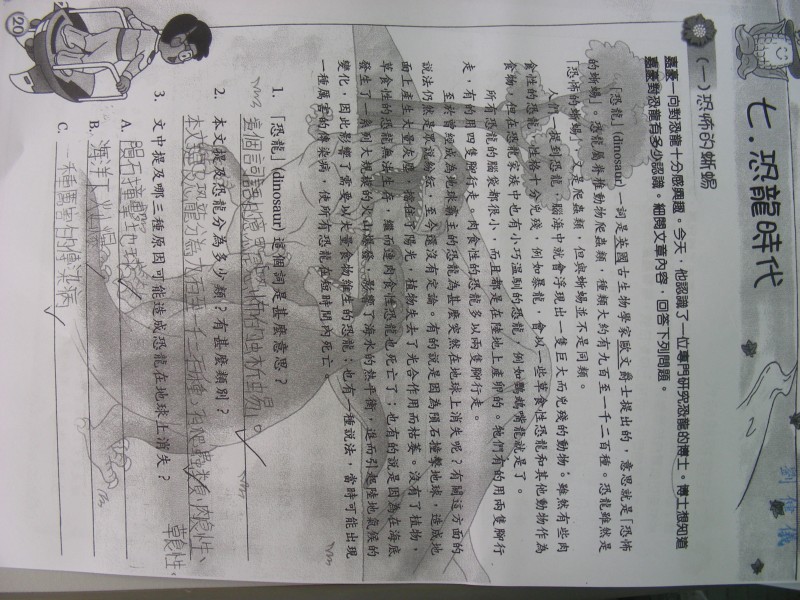 七.恐龍時代
(一)恐怖的蜥蜴
嘉豪一向對恐龍十分感興趣。今天，他認識了一位專門研究恐龍的博士。博士想知道
嘉豪對恐龍有多少認識。細閱文章內容，回答下列問題。
「恐龍」(dinosaur)一詞是英國古生物學家歐文爵士提出的，意思就是「恐怖
的蜥蜴」。恐龍屬脊椎動物爬蟲類，種類大約有九百至一千二百種。恐龍雖然是
「恐怖的蜥蜴」，又是爬蟲類，但與蜥蜴並不是同類。
人們一提到恐龍，腦海中就會浮現出一隻巨大而兇殘的動物；雖然有些肉
食性的恐龍，性格十分兇殘，例如暴龍，會以一些草食性恐龍和其他動物作為
食物，但在恐龍家族中也有小巧溫馴的恐龍，例如鸚鵡嘴龍就是了。
所有恐龍的腦袋都很小，而且都是在陸地上產卵的。牠們有的用兩隻腳行
走，有的用四隻腳行走。肉食性的恐龍多以兩隻腳行走。
至於曾經成為地球霸主的恐龍為甚麼突然在地球上消失呢？有關這方面的
說法仍然是眾說紛紜，至今還沒有定論。有的說是因為隕石撞擊地球，造成地
面上產生大量灰塵，擋住了陽光，植物失去了光合作用而枯萎。沒有了植物，
草食性的恐龍無法生存，繼而連肉食性恐龍也死亡了；也有的說是因為在海底
發生了一系列大規模的火山爆發，影響了海水的熱平衡，進而引起陸地氣候的
變化，因此影響了需要以大量食物維生的恐龍；也有一種說法，當時可能出現
一種厲害的傳染病，使所有恐龍在短時間內死亡。
1. 「恐龍」(dinosaur)這個詞是甚麼意思？
這個詞語的意思是恐怖的蜥蜴。
2. 本文提及恐龍分為多少類？有甚麼類別？
本文提及恐龍分為九百至一千二百種，有爬蟲類、肉食性、
草食性、
3. 文中提及哪三種原因可能造成恐龍在地球上消失？
A. 隕石撞擊地球
B. 海洋火山爆
C. 一種厲害的傳染病
20